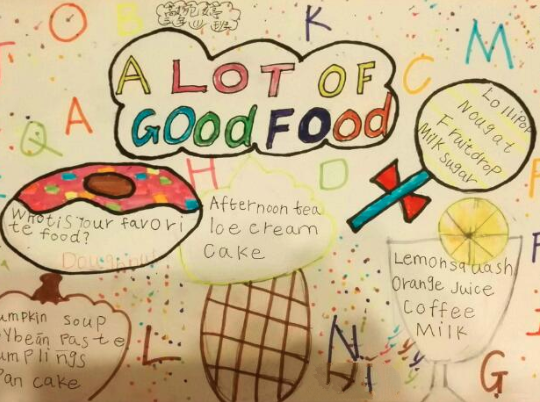 O
B
K
M
A LOT OF
GOOd FOOd
C
Lollipop
Nougat
Fruitdrop
Milk Sugar
A
Q
H
D
What iS Your favori
te food?
Afternoon tea
Ice cream
Cake
Lemonsquash
Orange Juice
Coffee
Milk
umpkin soup
oybean paste
umplings
an cake
L
N
G